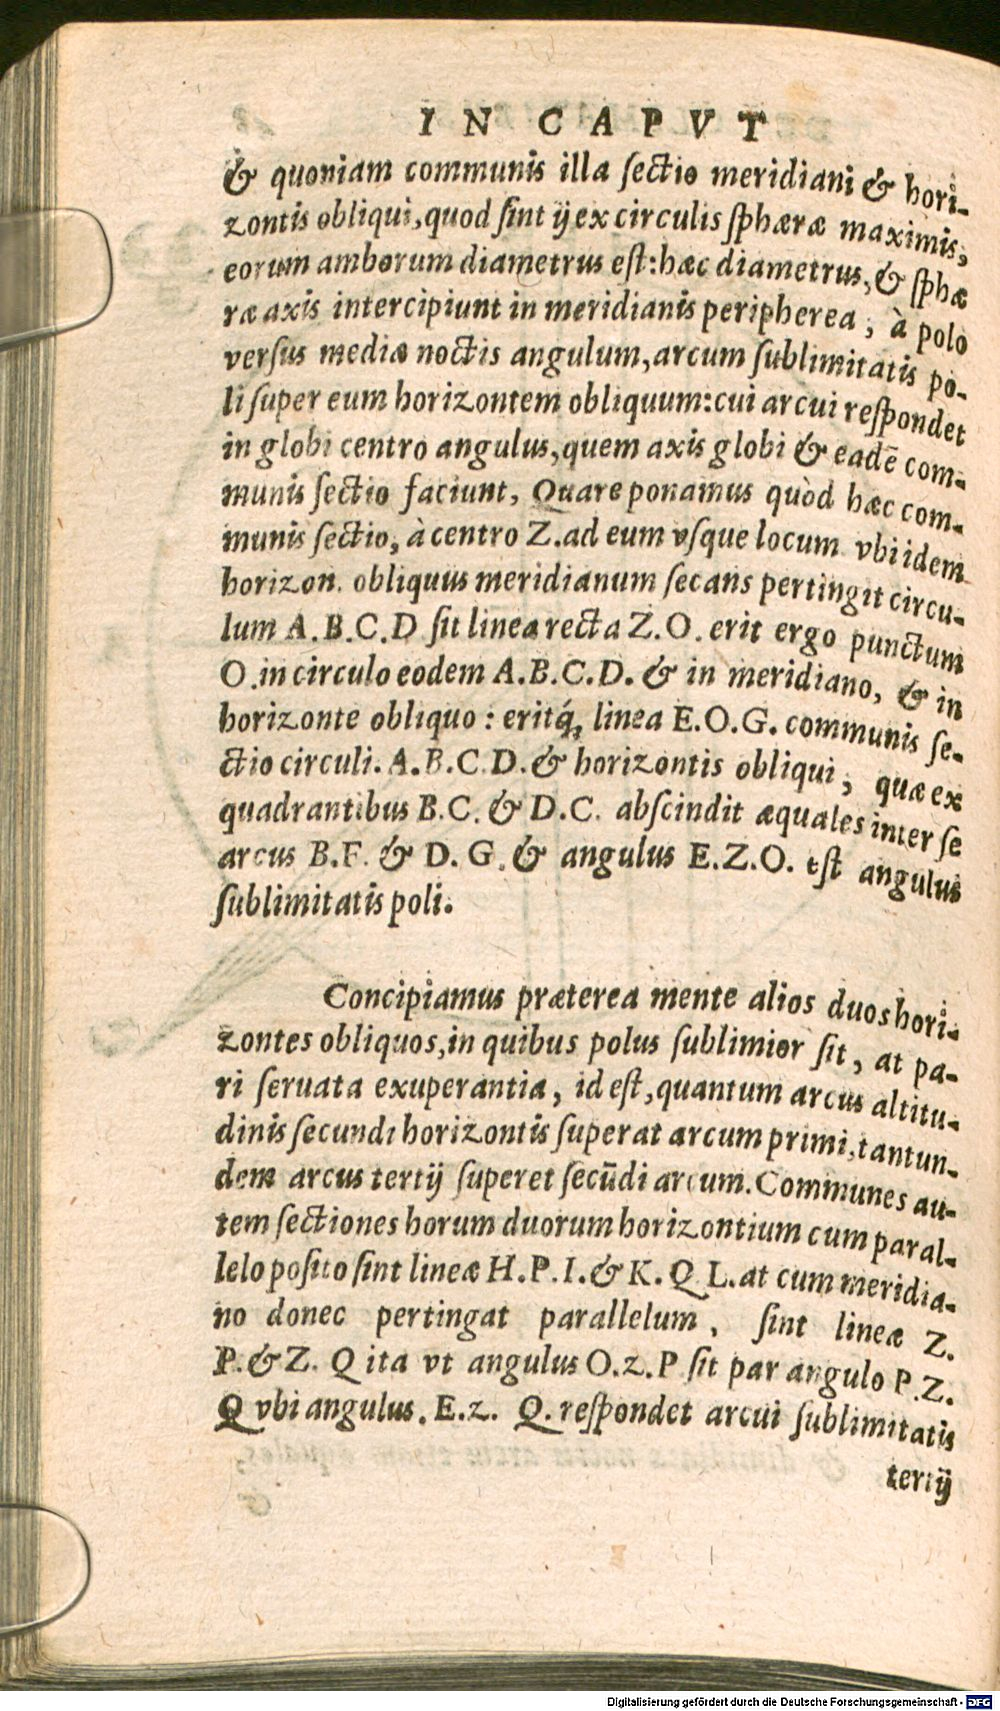 IN CAPVT
& quoniam communis illa ſectio meridiani & hori-
zontis obliqui, quod ſint ij ex circulis ſphæræ maximis,
eorum amborum diametrus eſt: hæc diametrus, & ſphæ
ræ axis intercipiunt in meridianis peripherea, à polo
verſus mediæ noctis angulum, arcum ſublimitatis po-
li ſuper eum horizontem obliquum: cui arcui reſpondet
in globi centro angulus, quem axis globi & eadē com-
munis ſectio faciunt, Quare ponamus quòd hæc com-
munis ſectio, à centro Z. ad eum vſque locum vbi idem
horizon. obliquus meridianum ſecans pertingit circu-
lum A.B.C.D ſit linea recta Z.O. erit ergo punctum
O. in circulo eodem A.B.C.D. & in meridiano, & in
horizonte obliquo: eritq́, linea E.O.G. communis ſe-
ctio circuli. A.B.C.D. & horizontis obliqui, quæ ex
quadrantibus B.C. & D.C. abſcindit æquales inter ſe
arcus B.F. & D.G. & angulus E.Z.O. eſt angulus
ſublimitatis poli.
Concipiamus præterea mente alios duos hori-
zontes obliquos, in quibus polus ſublimior ſit, at pa-
ri ſeruata exuperantia, id eſt, quantum arcus altitu-
dinis ſecundi horizontis ſuperat arcum primi, tantun-
dem arcus tertij ſuperet ſecūdi arcum. Communes au-
tem ſectiones horum duorum horizontium cum paral-
lelo poſito ſint lineæ H.P.I. & K.Q L. at cum meridia-
no donec pertingat parallelum, ſint lineæ Z.
P. & Z. Q ita vt angulus O.z.P ſit par angulo P.Z.
Q vbi angulus. E.z. Q. reſpondet arcui ſublimitatis
tertij
Digitalisierung gefördert durch die Deutsche Forschungsgemeinschaft - DFG